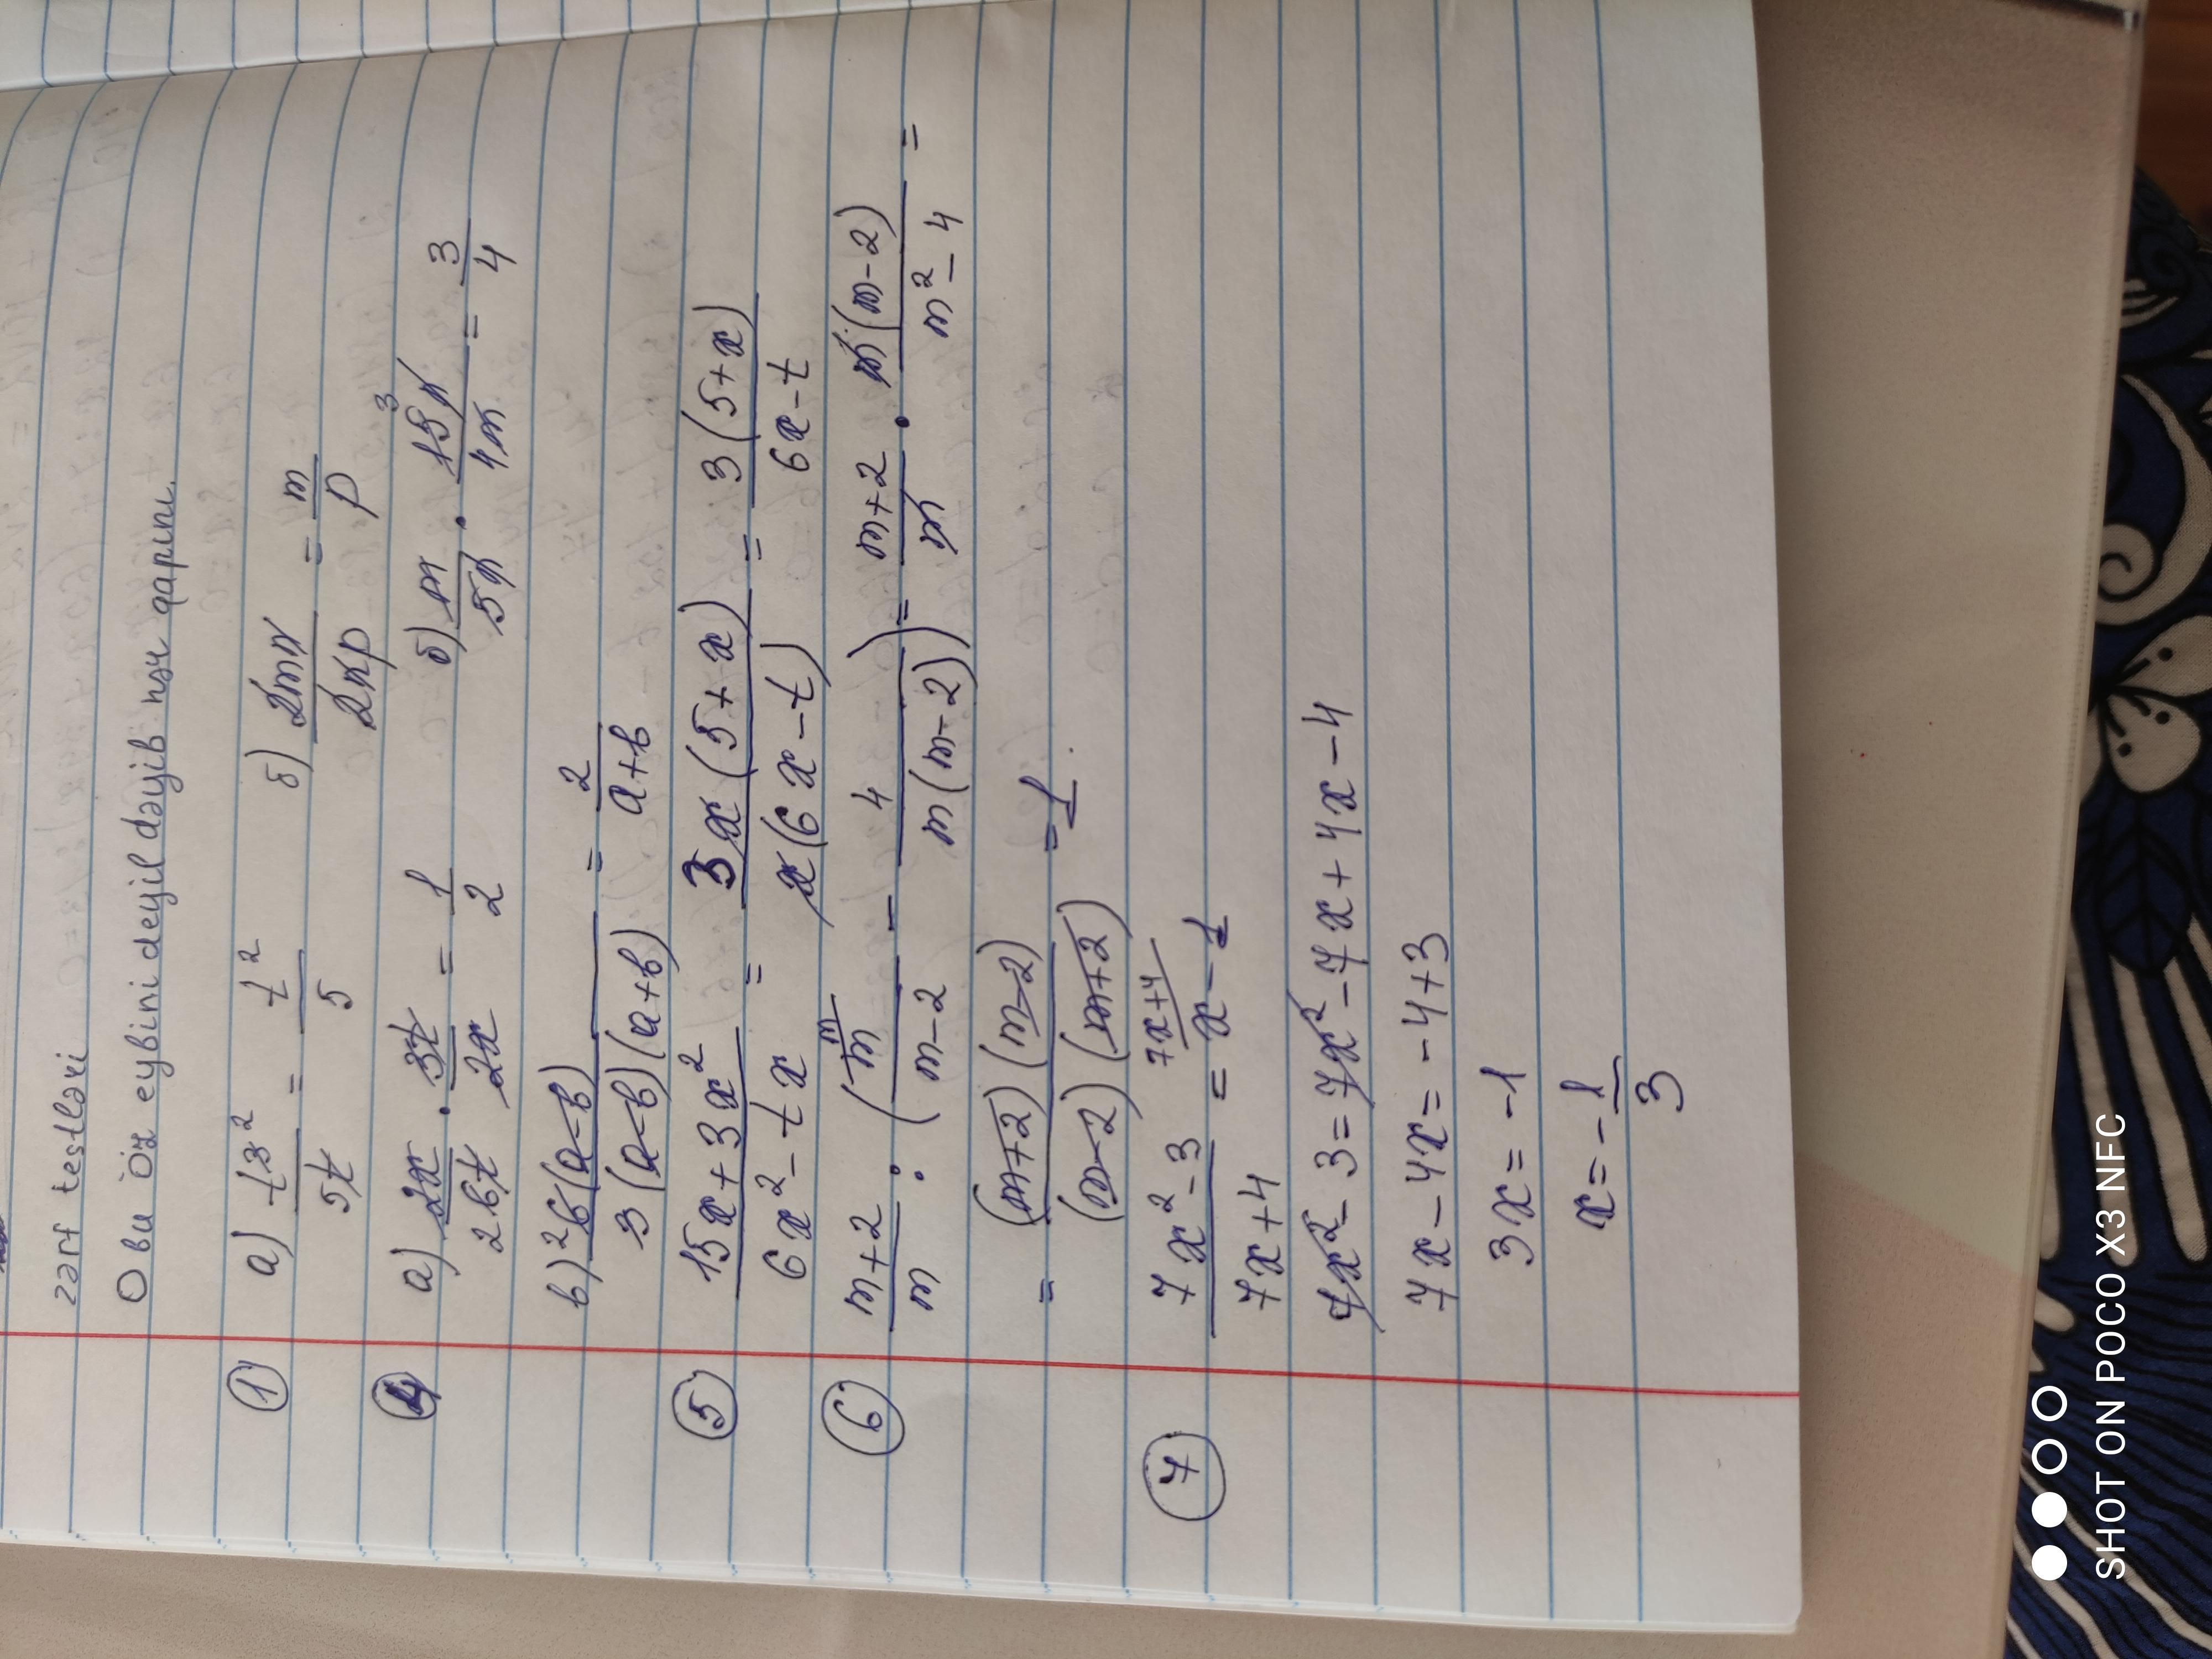 zərf testləri
O bu öz eybini deyil dəyib hər qapını.
① a) t³²/5t = t²/5 б) 2mn/2np = m/p
④ a) 2x/26t · 3t/2x = 1/2 б) m/5n · 15n³/4m = 3/4
в) ²6(a-b)/3(a-b)(a+b) = 2/a+b
⑤ 15x+3x²/6x²-tx = 3x(5+x)/x(6x-t) = 3(5+x)/6x-t
⑥ m+2/m : (m/m-2 - 4/m(m-2)) = m+2/m · m(m-2)/m²-4 =
= (m+2)(m-2)/(m-2)(m+2) = 1.
⑦ 7x²-3/7x+4 = x-1 7x+4
7x²-3=7x²-7x+4x-4
7x-4x=-4+3
3x=-1
x=-1/3
SHOT ON POCO X3 NFC